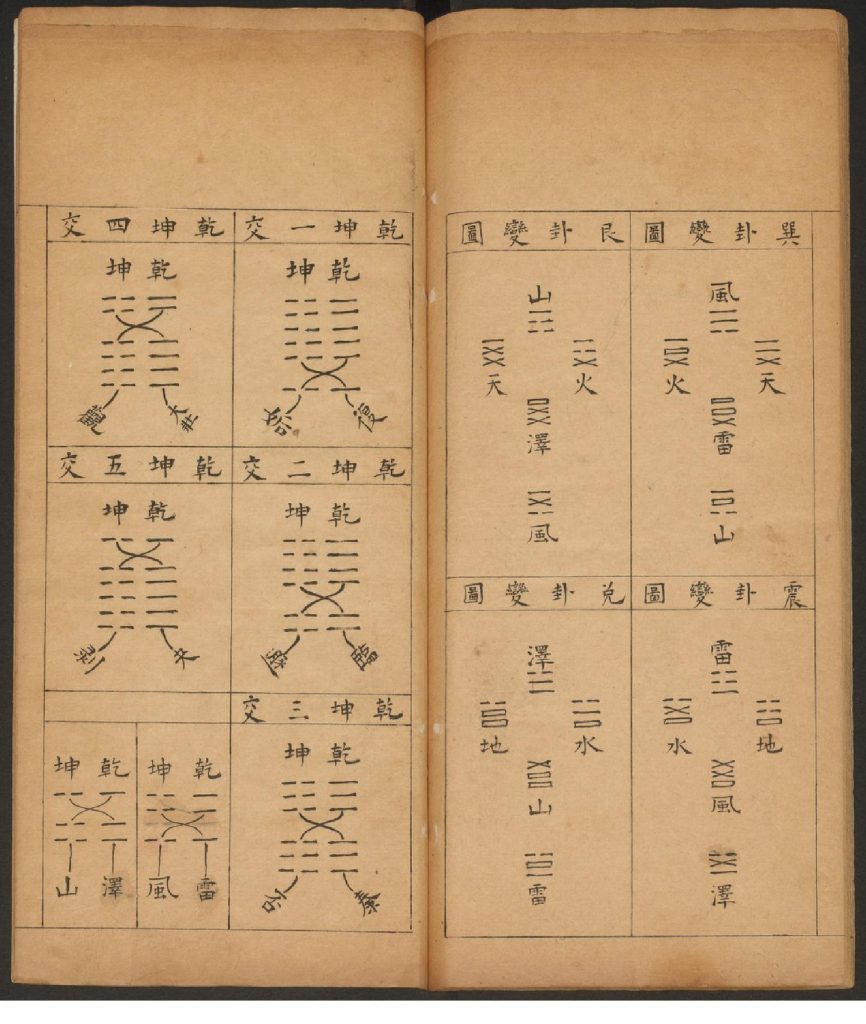 巽卦變圖
風
天 火
雷
山
艮卦變圖
山
火 天
澤
風
震卦變圖
雷
地 水
風
澤
兌卦變圖
澤
水 地
山
雷
乾坤一交
乾坤
復 姤
乾坤二交
乾坤
臨 遯
乾坤三交
乾坤
泰 否
乾坤四交
乾坤
大壯 觀
乾坤五交
乾坤
夬 剝
乾坤
雷 風
乾坤
澤 山